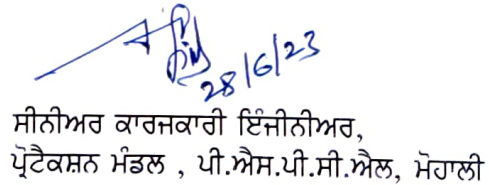 28/6/23
ਸੀਨੀਅਰ ਕਾਰਜਕਾਰੀ ਇੰਜੀਨੀਅਰ,
ਪ੍ਰੋਟੈਕਸ਼ਨ ਮੰਡਲ , ਪੀ.ਐਸ.ਪੀ.ਸੀ.ਐਲ, ਮੋਹਾਲੀ